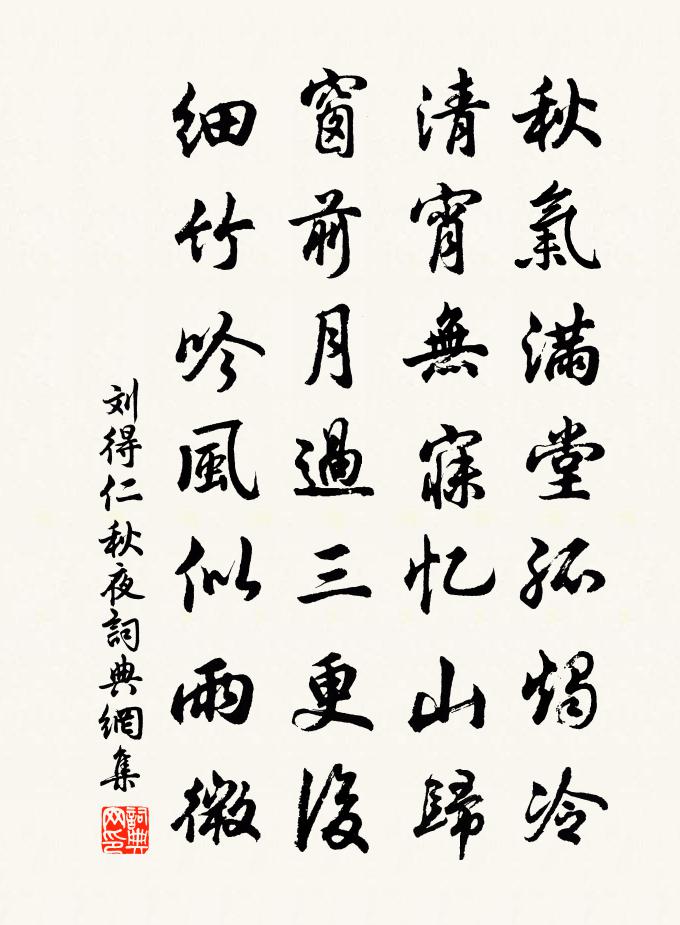 秋氣滿堂孤燭冷
清宵無寐忆山歸
窗前月過三更後
細竹吟風似雨微
刘得仁秋夜詞典網集
詞典
网印